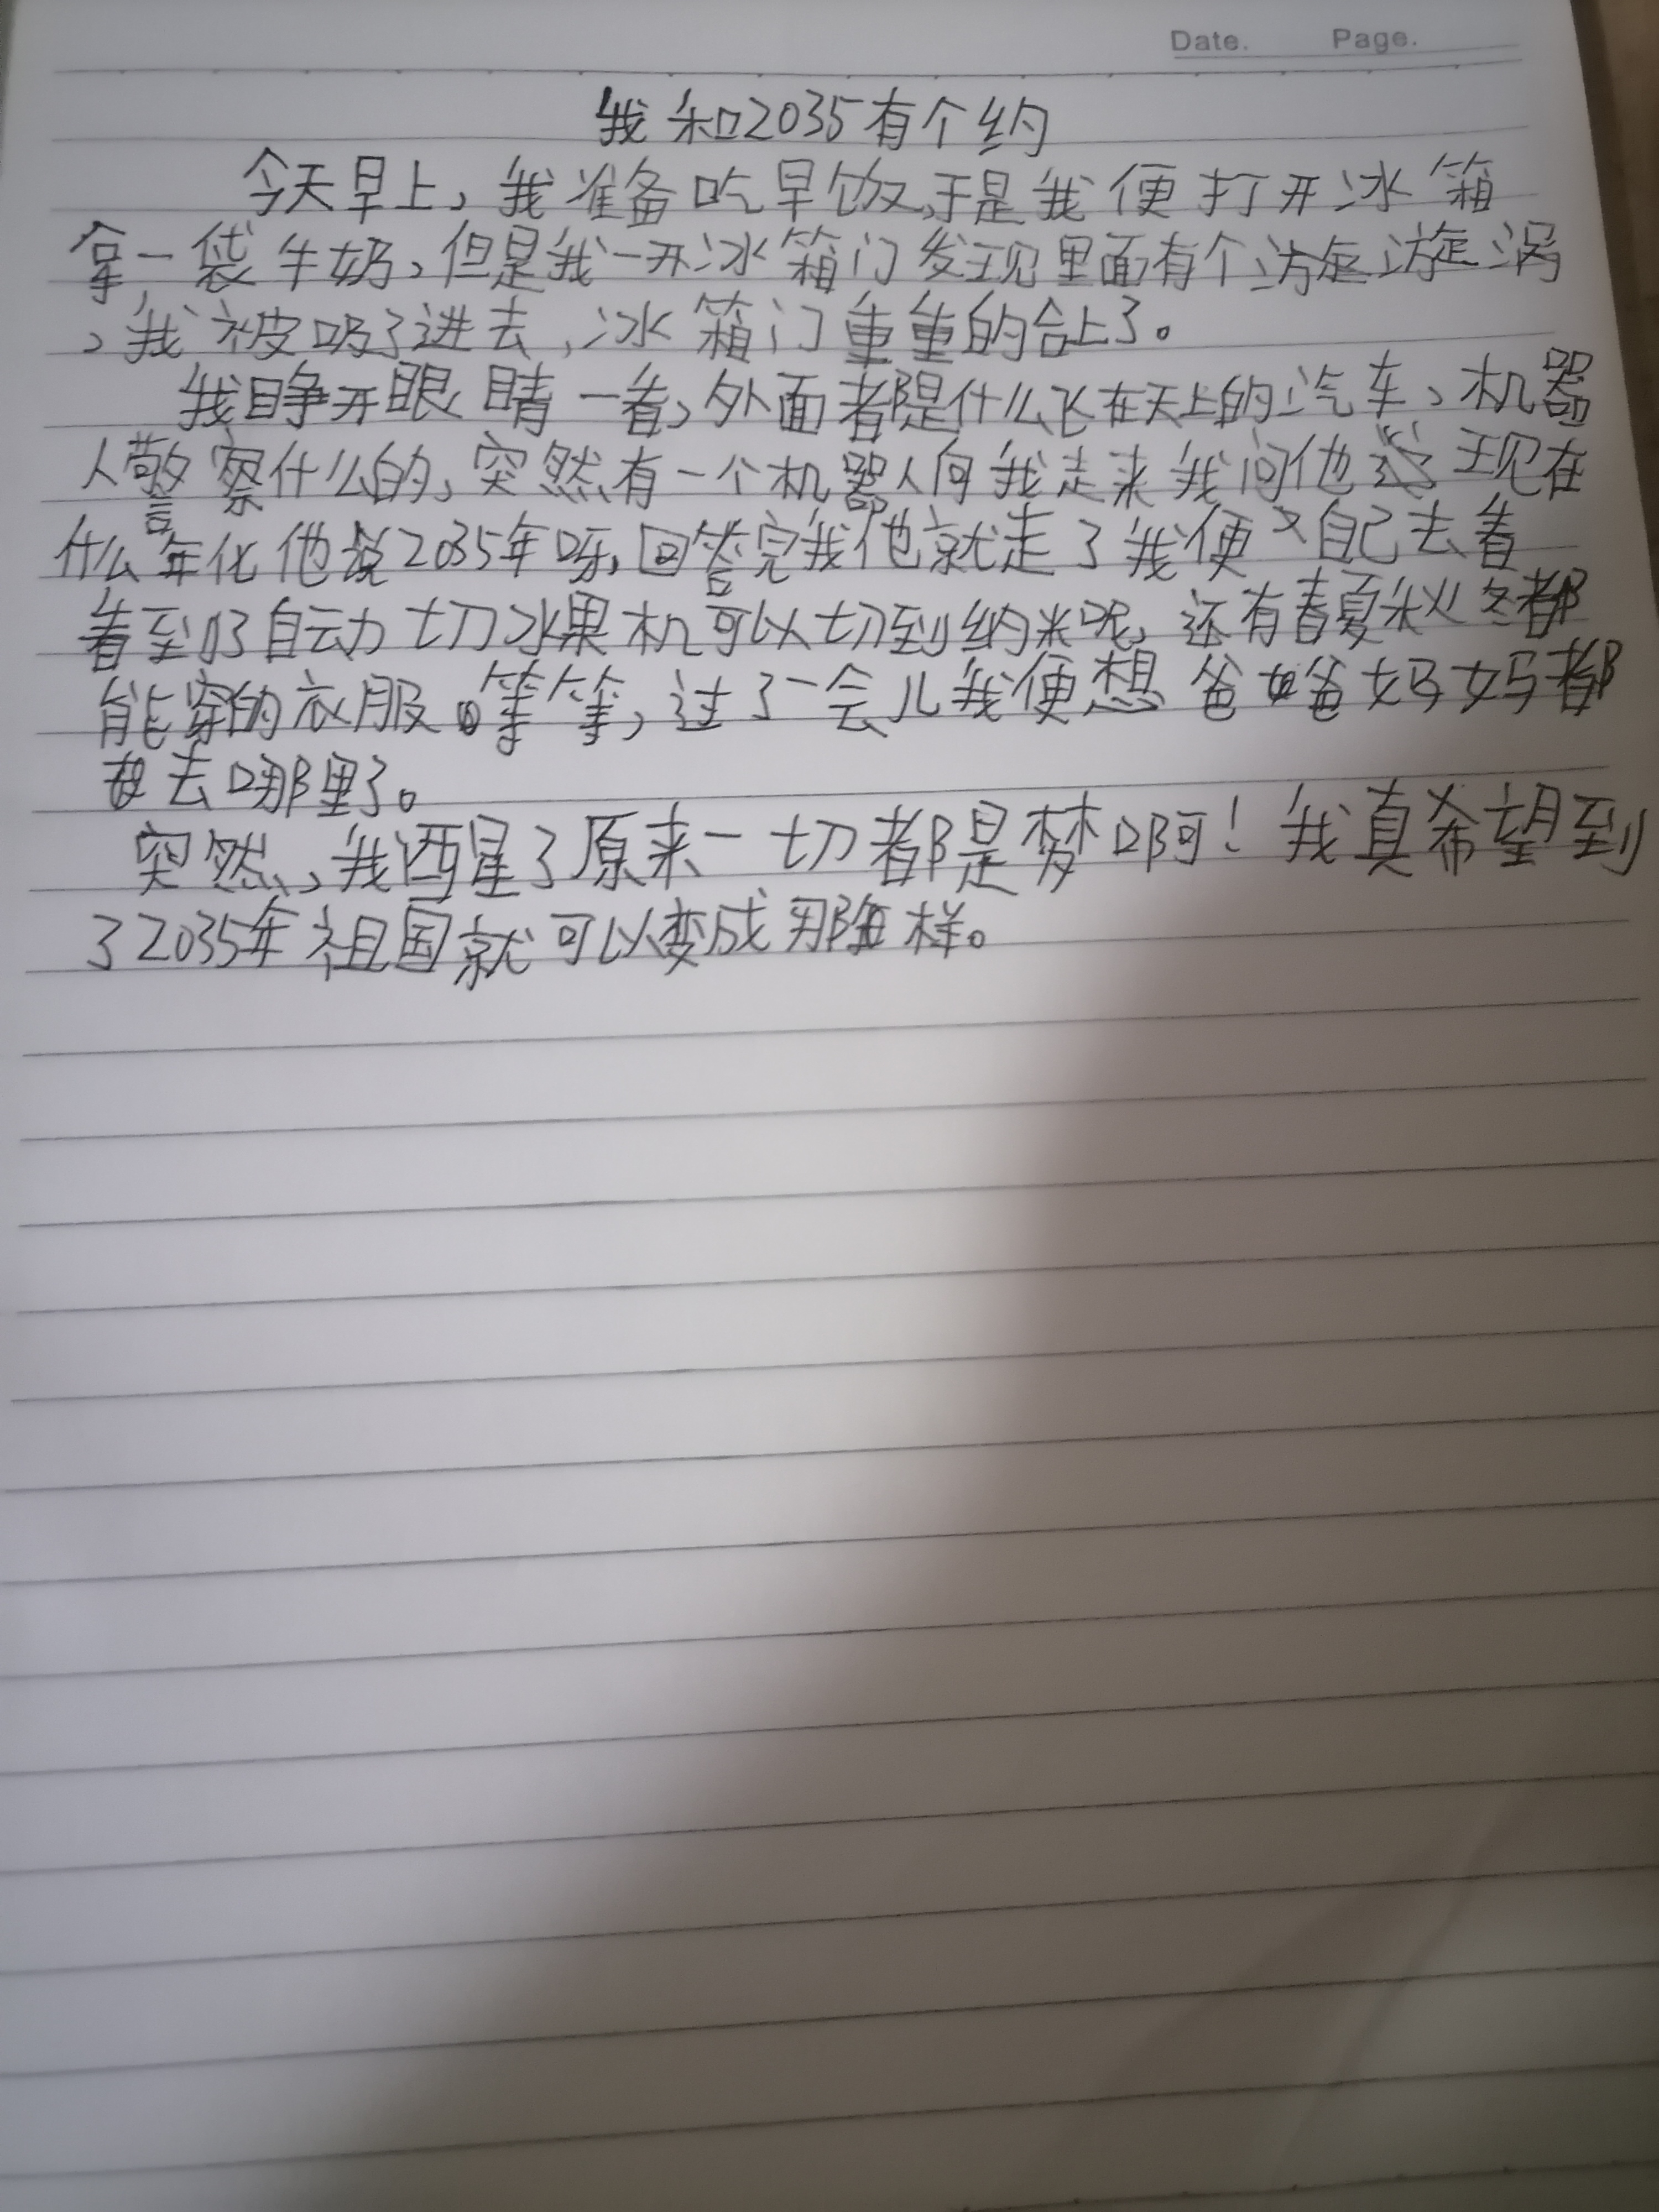 Date. Page.
我和2035有个约
今天早上，我准备吃早饭，于是我便打开冰箱
拿一袋牛奶，但是我一开冰箱门发现里面有个旋旋涡
，我被吸了进去，冰箱门重重的合上了。
我睁开眼睛一看，外面都是什么飞在天上的汽车、机器
人警察什么的，突然有一个机器人向我走来我问他 现在
什么年化他说2035年呀，回答完我他就走了我便又自己去看
看到了自动切水果机可以切到纳米呢，还有春夏秋冬都
能穿的衣服。等等，过了一会儿我便想爸爸妈妈都
去哪里了。
突然，我酉星了原来一切都是梦啊！我真希望到
了2035年祖国就可以变成那样。